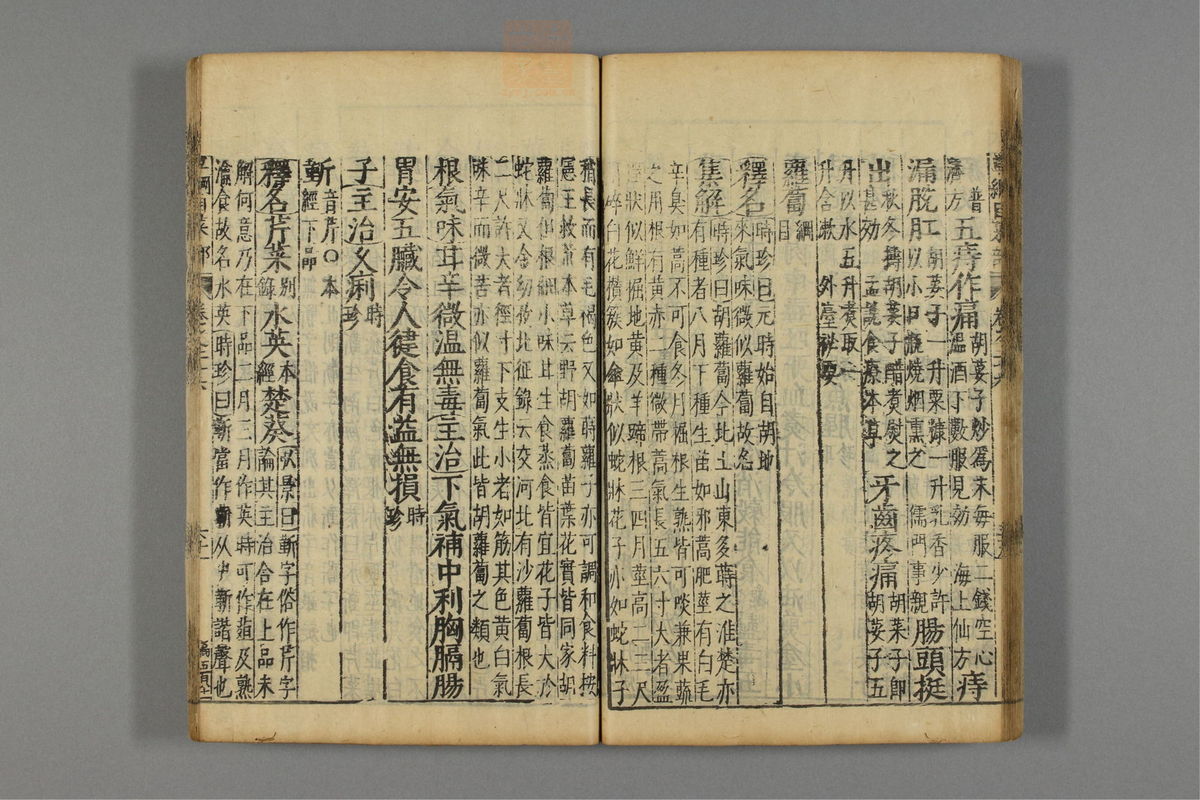 濟方 五痔作痛 胡荽子炒爲末每服二錢空心溫酒下數服見効 海上仙方 痔
漏脫肛 胡荽子一升粟糠一升乳香少許以小口瓶燒烟熏之 儒門事親 腸頭挺
出 秋冬擣胡荽子醋煮熨之甚効 孟詵食療本草 牙齒疼痛 胡菜子即胡荽子五
升以水五升煑取一升含漱 外臺秘要
蘿蔔 綱目
釋名 時珍曰元時始自胡地來氣味微似蘿蔔故名
集解 時珍曰胡蘿蔔今北土山東多蒔之淮楚亦
有種者八月下種生苗如邪蒿肥莖有白毛
辛臭如蒿不可食冬月掘根生熟皆可啖兼果蔬
之用根有黄赤二種微帶蒿氣長五六寸大者盈
握狀似鮮掘地黄及羊蹄根三四月莖高二三尺
碎白花攢簇如傘狀似蛇牀花子亦如蛇牀子
稍長而有毛褐色又如蒔蘿子亦可調和食料按
憲王救荒本草云野胡蘿蔔苗葉花實皆同家胡
蘿蔔但根細小味甘生食蒸食皆宜花子皆大於
蛇牀又金幼孜北征錄云交河北有沙蘿蔔根長
二尺許大者徑寸下支生小者如筋其色黄白氣
味辛而微苦亦似蘿蔔氣此皆胡蘿蔔之類也
根 氣味 甘辛微溫無毒 主治 下氣補中利胸膈腸
胃安五臟令人健食有益無損 時珍
子 主治 久痢 時珍
蘄 音芹〇本經下品
釋名 芹菜 别錄 水英 本經 楚葵 弘景曰蘄字俗作芹字
論其主治合在上品未解何意乃在下品二月三月作英時可作葅及熟
瀹食故名水英時珍曰蘄當作從屮蘄諧聲也